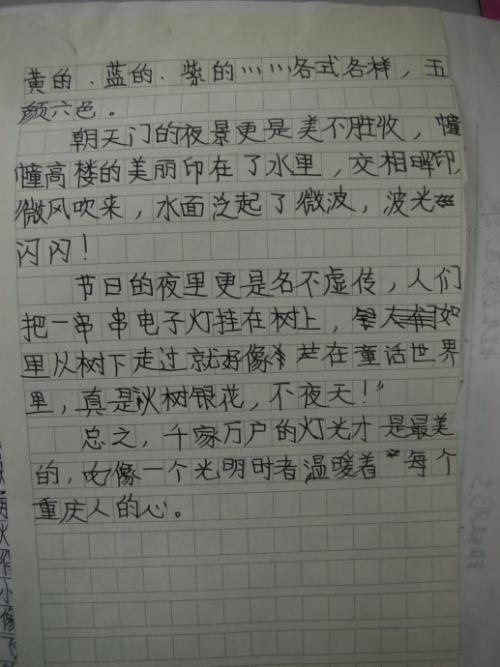 黄的、蓝的、紫的……各式各样，五
颜六色。
朝天门的夜景更是美不胜收，幢
幢高楼的美丽印在了水里，交相晖印，
微风吹来，水面泛起了微波，波光
闪闪！
节日的夜里更是名不虚传，人们
把一串串电子灯挂在树上，如
里从树下走过就好像在童话世界
里，真是"火树银花，不夜天！"
总之，千家万户的灯光才是最美
的，像一个光明时者温暖着每个
重庆人的心。